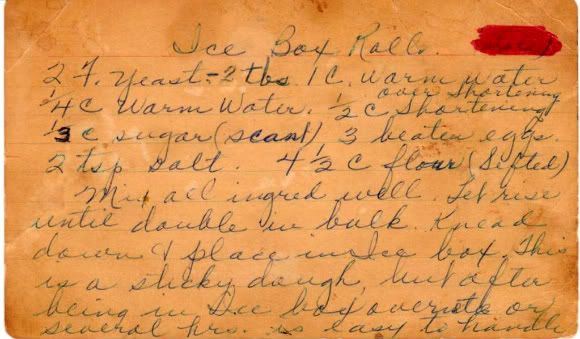 Ice Box Rolls.
2 F. Yeast - 2 tbs 1 C. Warm water
over shortening
1/4 C Warm Water. 1/2 C Shortening
1/3 C sugar (scant) 3 beaten eggs.
2 tsp salt. 4 1/2 C flour (Sifted)
Mix all ingred well. Let rise
until double in bulk. Knead
down & place in Ice box. This
is a sticky dough, but after
being in Ice box overnite or
several hrs. is easy to handle